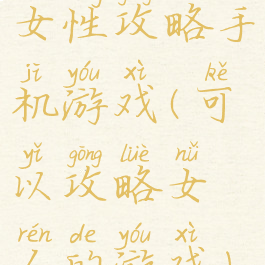 女性攻略手
jī yóu xì kě
机游戏(可
yǐ gōng lüè nǚ
以攻略女
rén de yóu xì
人的游戏)